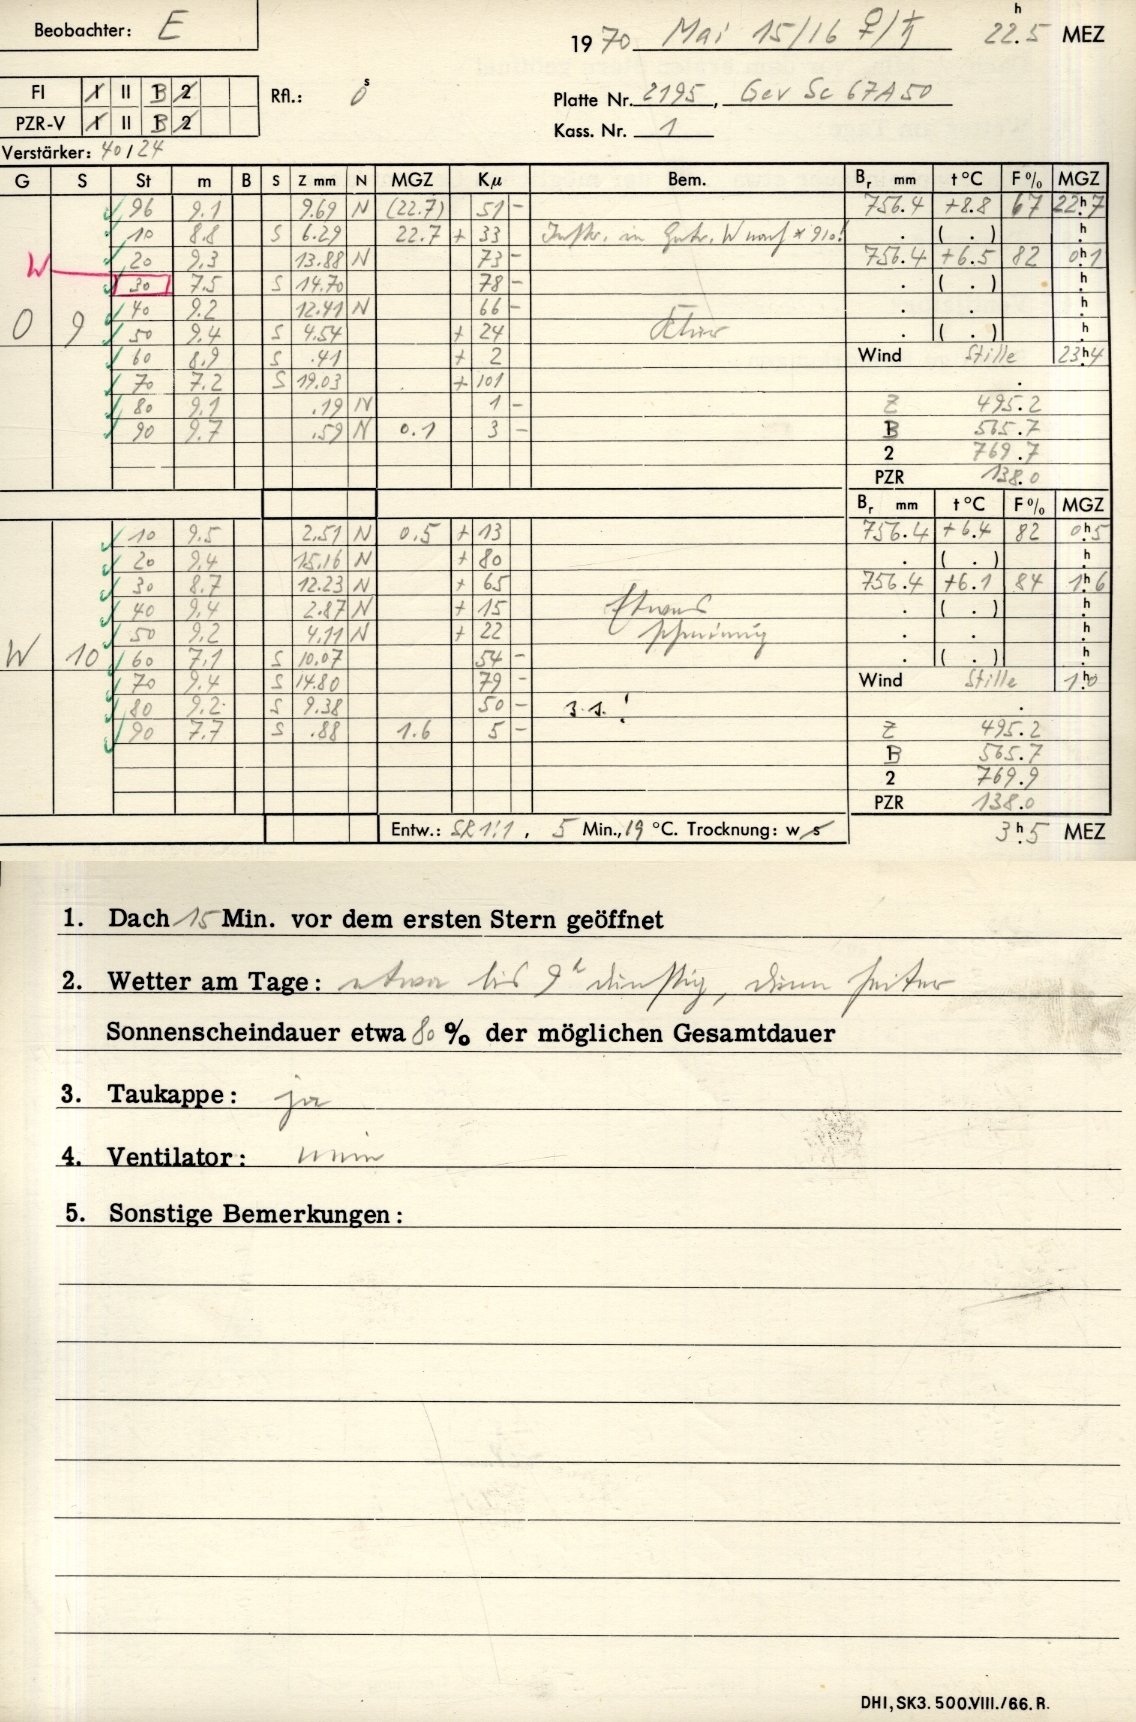 Beobachter: E
1970 Mai 15/16 ♀/♄ 22.5 h MEZ
FI I II B 2 Rfl.: 0 s
Platte Nr. 2195, Gev Sc 67A50
PZR-V I II B 2
Kass. Nr. 1
Verstärker: 40/24
G S St m B S Z mm N MGZ Kμ Bem. Br mm t °C F % MGZ
96 9.1 9.69 N (22.7) 51 - 756.4 +8.8 67 22h7
10 8.8 S 6.29 22.7 + 33 Instr. in W nach * 910! . ( . ) h
W 20 9.3 13.88 N 73 - 756.4 +6.5 82 0h1
30 7.5 S 14.70 78 - . ( . ) h
40 9.2 12.41 N 66 - . . h
O 9 50 9.4 S 4.54 + 24 Klar . ( . ) h
60 8.9 S .41 + 2 Wind Stille 23h4
70 7.2 S 19.03 + 101 .
80 9.1 .19 N 1 - Z 495.2
90 9.7 .59 N 0.1 3 - B 565.7
2 769.7
PZR 138.0
Br mm t °C F % MGZ
10 9.5 2.51 N 0.5 + 13 756.4 +6.4 82 0h5
20 9.4 15.16 N + 80 . ( . ) h
30 8.7 12.23 N + 65 756.4 +6.1 84 1h6
40 9.4 2.87 N + 15 Etwas . ( . ) h
50 9.2 4.11 N + 22 . . h
W 10 60 7.1 S 10.07 54 - . ( . ) h
70 9.4 S 14.80 79 - Wind Stille 1h0
80 9.2 S 9.38 50 - 3.s.! .
90 7.7 S .88 1.6 5 - Z 495.2
B 565.7
2 769.9
PZR 138.0
Entw.: SR 1:1, 5 Min., 19 °C. Trocknung: w s
3h5 MEZ
1. Dach 15 Min. vor dem ersten Stern geöffnet
2. Wetter am Tage: etwa bis 9h dunstig, dann heiter
Sonnenscheindauer etwa 80 % der möglichen Gesamtdauer
3. Taukappe: ja
4. Ventilator: nein
5. Sonstige Bemerkungen:
DHI, SK3. 500.VIII./66. R.